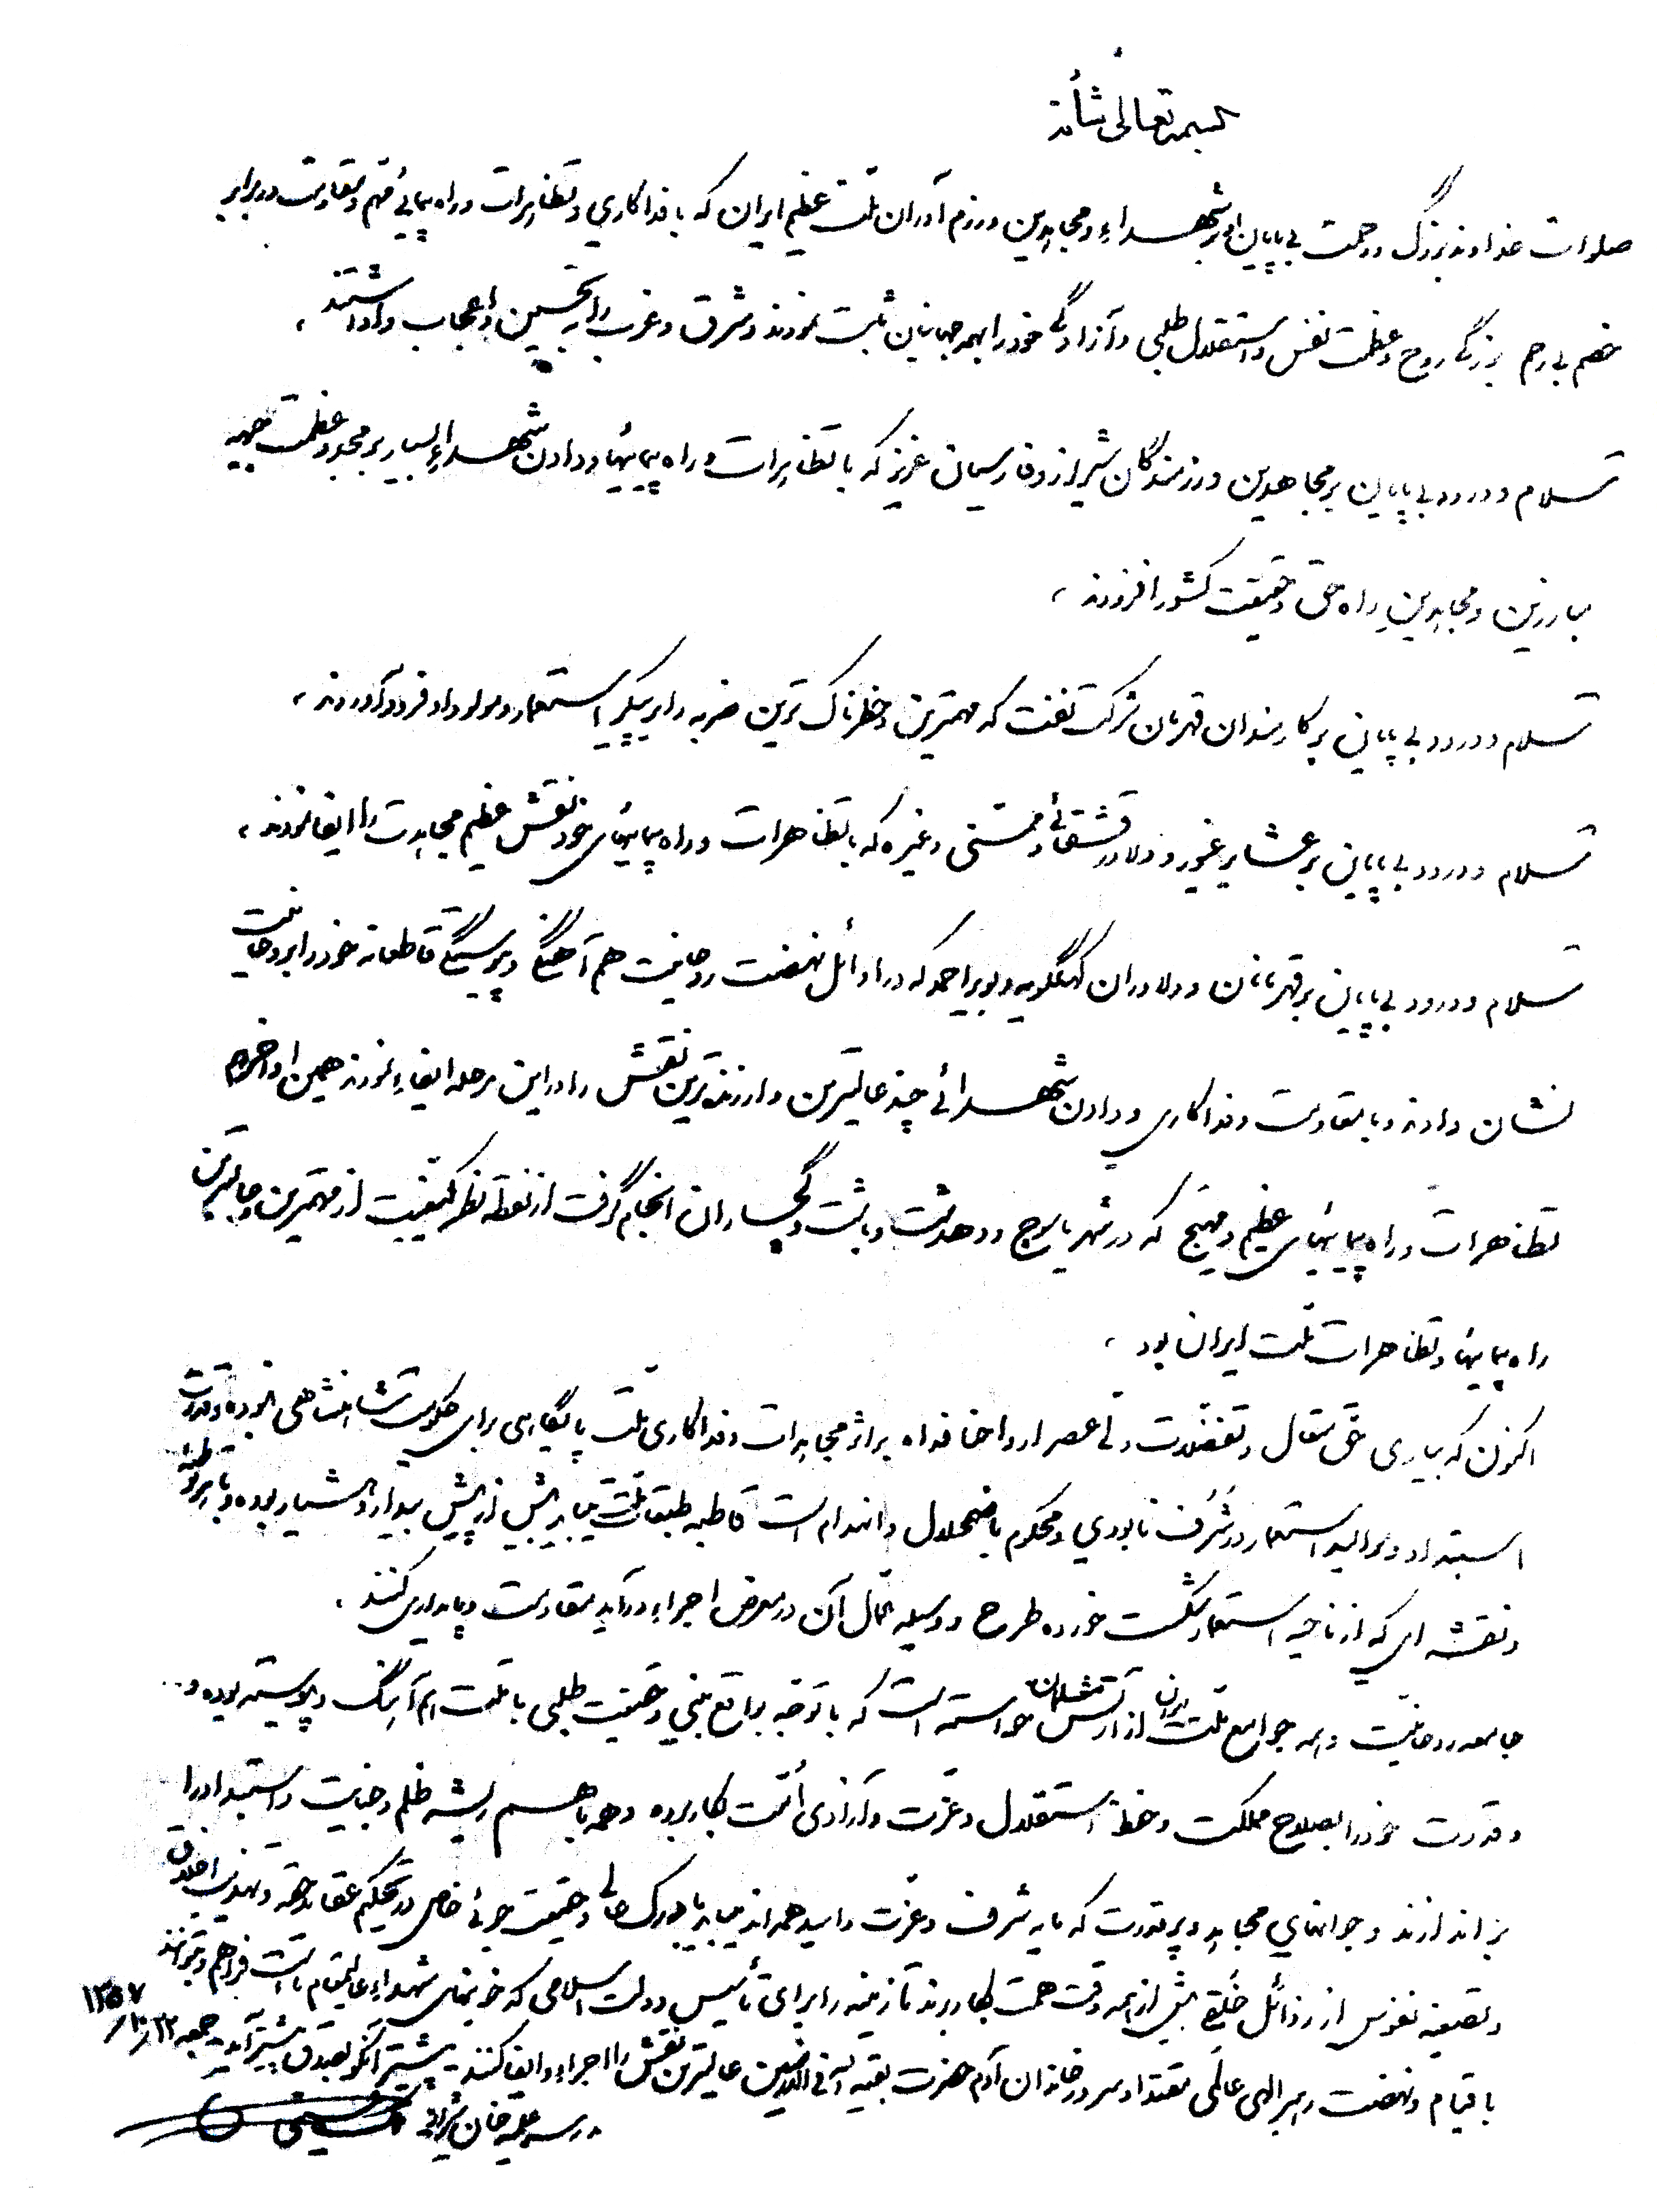 بسمه تعالی شأنه
صلوات خداوند بزرگ و رحمت بی پایان او بر شهداء و مجاهدین و رزم آوران ملت عظیم ایران که با فداکاری و تظاهرات و راه پیمائی مهم و مقاومت در برابر
خصم بی رحم بزرگی روح و عظمت نفس و استقلال طلبی و آزادگی خود را بهمه جهانیان ثابت نمودند و شرق و غرب را به تحسین و اعجاب واداشتند ،
سلام و درود بی پایان بر مجاهدین و رزمندگان شیراز و فارسیان عزیز که با تظاهرات و راه پیمائیها و دادن شهداء بسیار بر مجد و عظمت جبهه
مبارزین و مجاهدین راه حق و حقیقت کشور افزودند ،
سلام و درود بی پایان بر کارمندان قهرمان شرکت نفت که مهمترین و خطرناک ترین ضربه را بر پیکر استعمار و مولود او فرود آوردند ،
سلام و درود بی پایان بر عشایر غیور و دلاور قشقائی و ممسنی و غیره که با تظاهرات و راه پیمائیهای خود نقش عظیم مجاهدت را ایفا نمودند ،
سلام و درود بی پایان بر قهرمانان و دلاوران کهگلویه و بویراحمد که در اوائل نهضت روحانیت هم آهنگی و پیوستگی قاطعانه خود را بروحانیت
نشان دادند و با مقاومت و فداکاری و دادن شهدائی چند عالیترین و ارزنده ترین نقش را در این مرحله ایفاء نمودند همین اواخر هم
تظاهرات و راه پیمائیهای عظیم و مهیج که در شهر یاسوج و دهدشت و باشت و گچساران انجام گرفت از نقطه نظر کیفیت از مهمترین و جالبترین
راه پیمائیها و تظاهرات ملت ایران بود ،
اکنون که بیاری حق متعال و تفضلات ولی عصر ارواحنا فداه بر اثر مجاهدات و فداکاری ملت پایگاهی برای حکومت شاهنشاهی نبوده و قدرت
استبداد و موالید استعمار در شرف نابودی و محکوم باضمحلال و انهدام است قاطبه طبقات ملت میباید بیش از پیش بیدار و هشیار بوده و با هر توطئه
و نقشه ای که از ناحیه استعمار شکست خورده طرح و وسیله عمال آن در معرض اجراء درآید مقاومت و پایداری کنند .
جامعه روحانیت و همه جوامع ملت ایران از ارتش مسلمان خواستند است که با توجه بواقع بینی و حقیقت طلبی با ملت هم آهنگ و پیوسته بوده و ..
و قدرت خود را بصلاح مملکت و حفظ استقلال و عزت و آزادی امت بکار برده و همه با هم ریشه ظلم و جنایت و استبداد را
براندازند و جوانهای مجاهد و پرقدرت که مایه شرف و عزت و امید همه اند میباید با درک عالی و حقیقت جوئی خاص در تحکیم عقائد حقه و تهذیب اخلاق
و تصفیه نفوس از رذائل خلقی بیش از همه وقت همت بکار برند تا زمینه را برای تأسیس دولت اسلامی که خونبهای شهداء عالیمقام ما است فراهم و بتوانند
با قیام و نهضت رهبر الهی عالمی مقتدا و سرور خاندان آدم حضرت بقیة الله فی الارضین عالیترین نقش را اجراء و ایفا کنند - پیشتر آنکو بصدق پیشتر آید - جمعه ۲۲/ ۱۰/ ۱۳۵۷
مدرسه علمیه خان شیراز